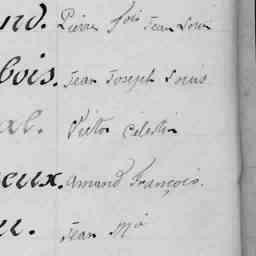 nd. Pierre fois Jean Louis
bois. Jean Joseph Louis
al. Victor Célestin
eux. Amand François.
u. Jean Mie